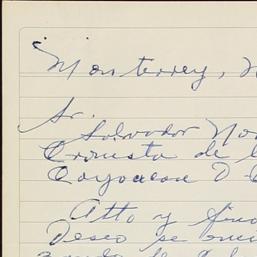 Monterrey, N
Sr.
Salvador Nov
Cronista de l
Coyoacan D
Atto y fino
Deseo se encu